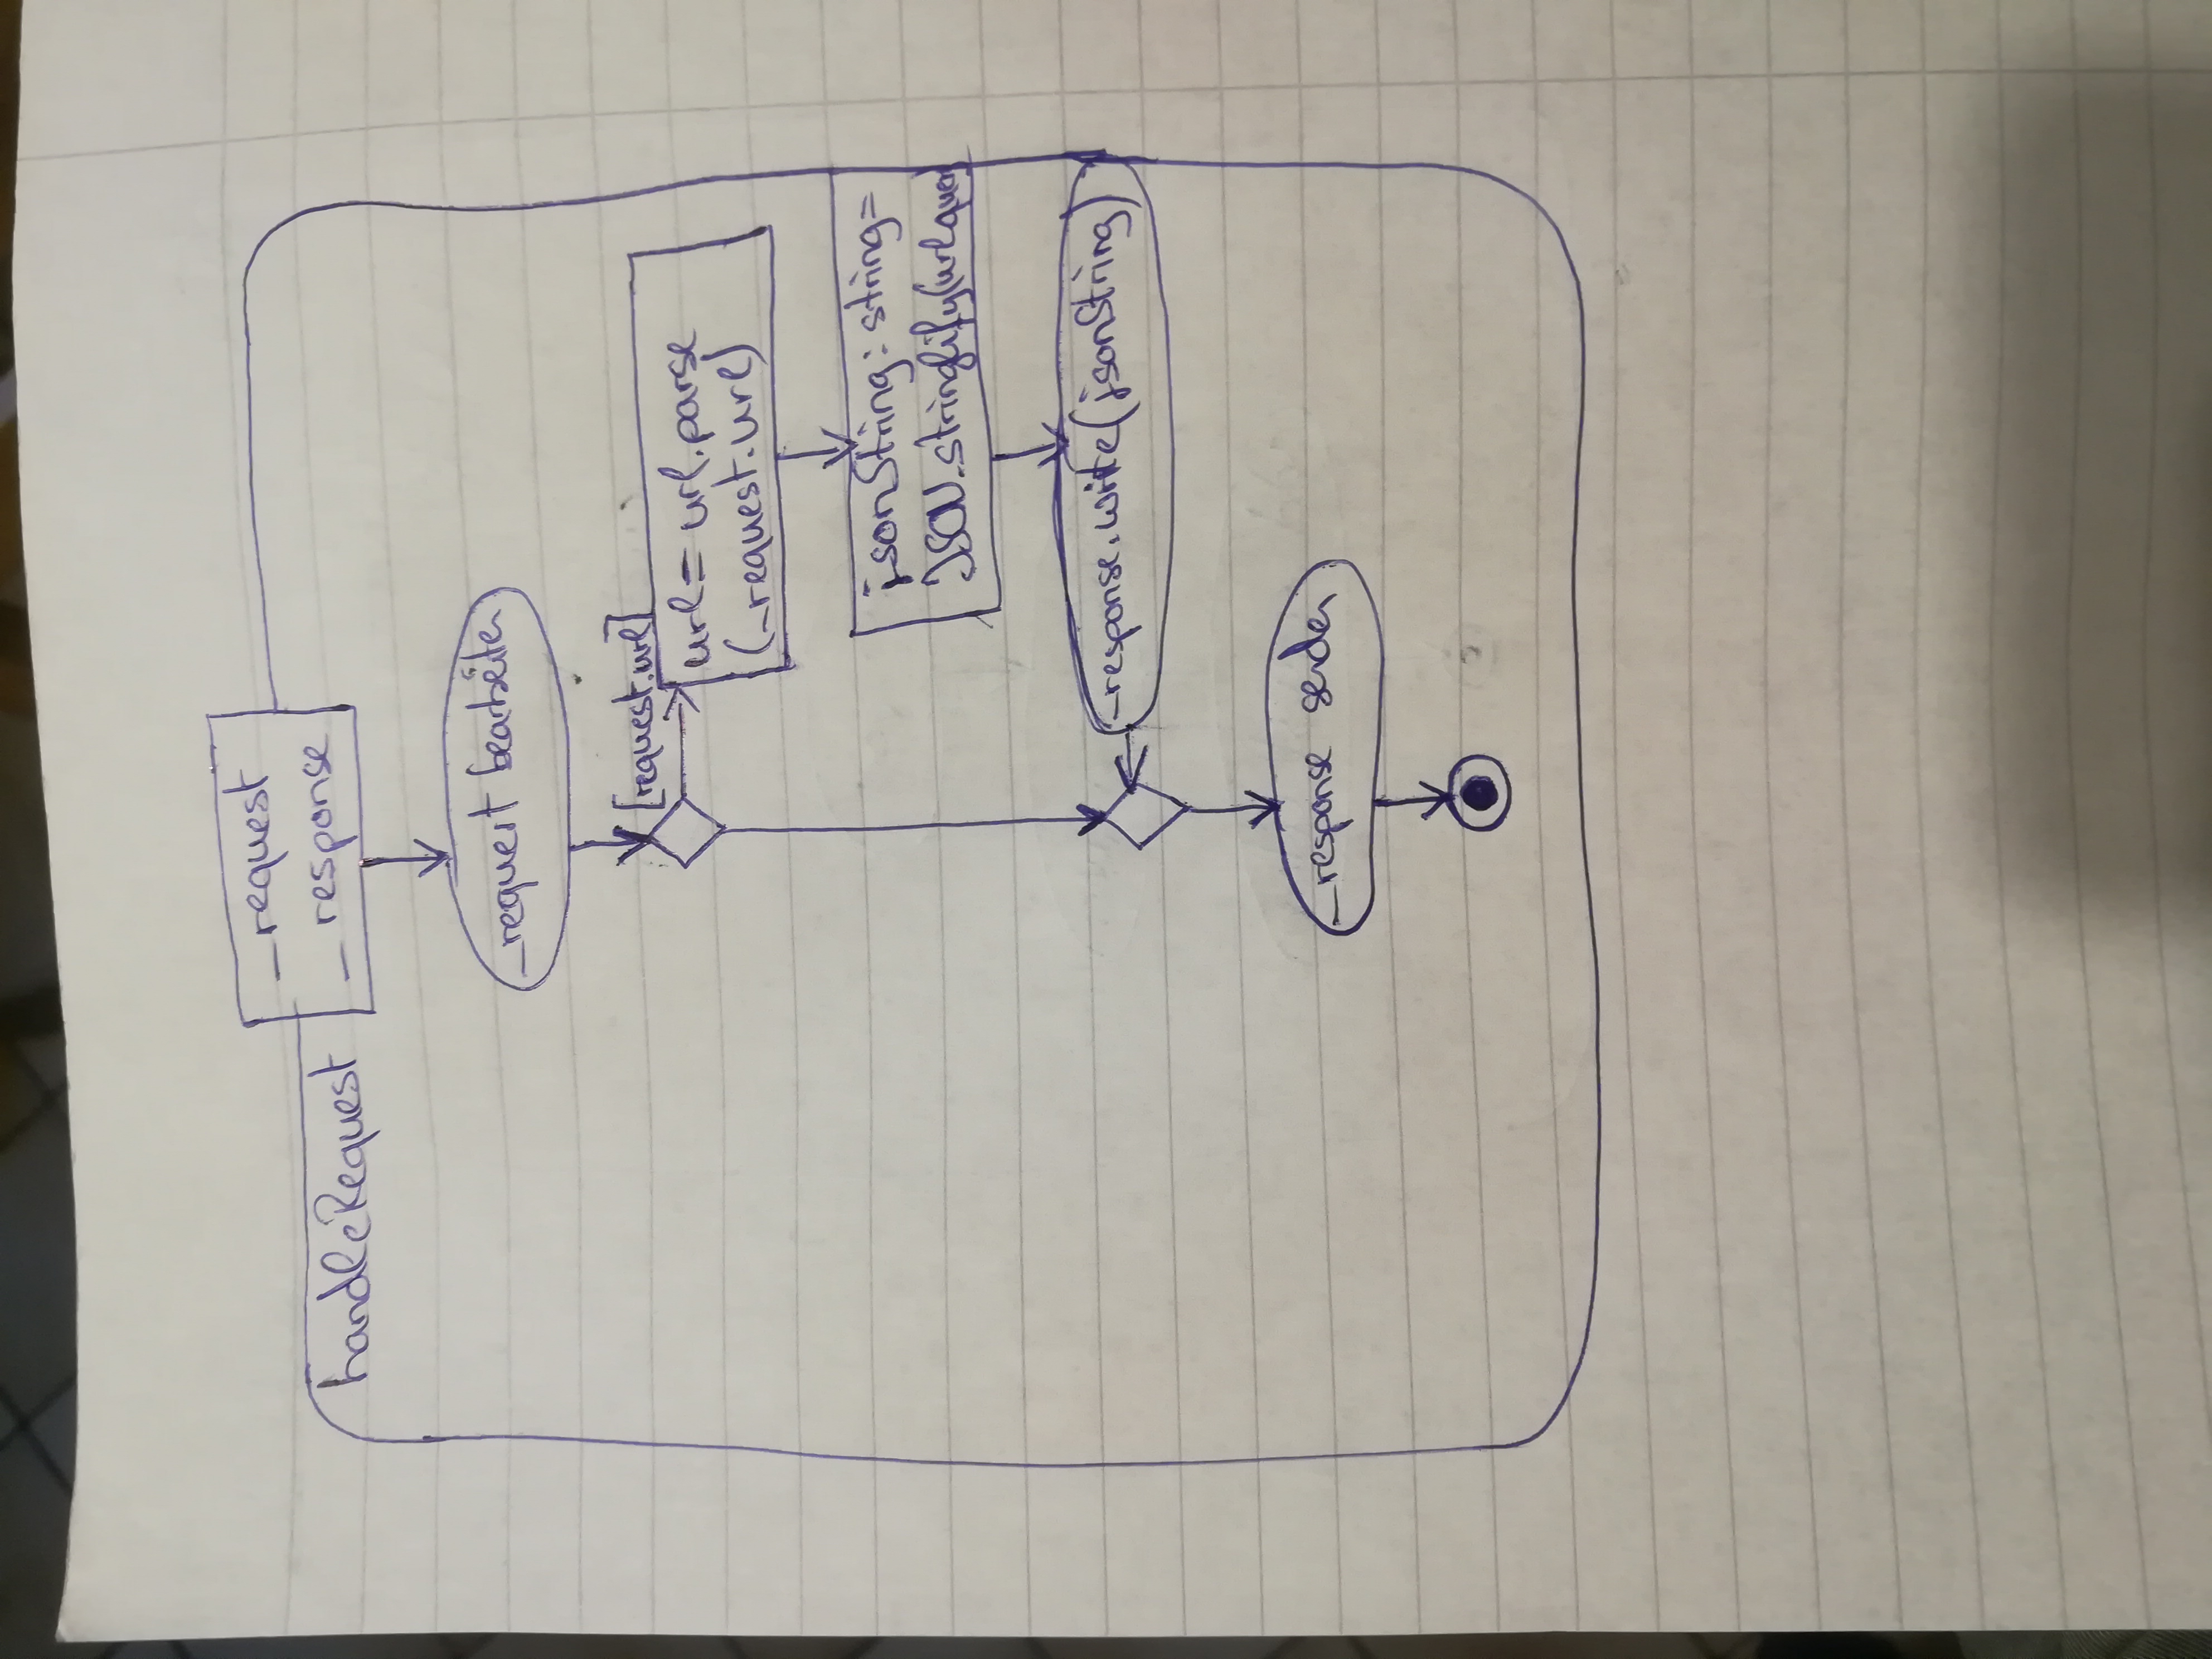 _request
_response
handleRequest
_request bearbeiten
[request.url]
url = url.parse
(_request.url)
jsonString: string =
JSON.stringify(url.query
_response.write(jsonString)
_response senden